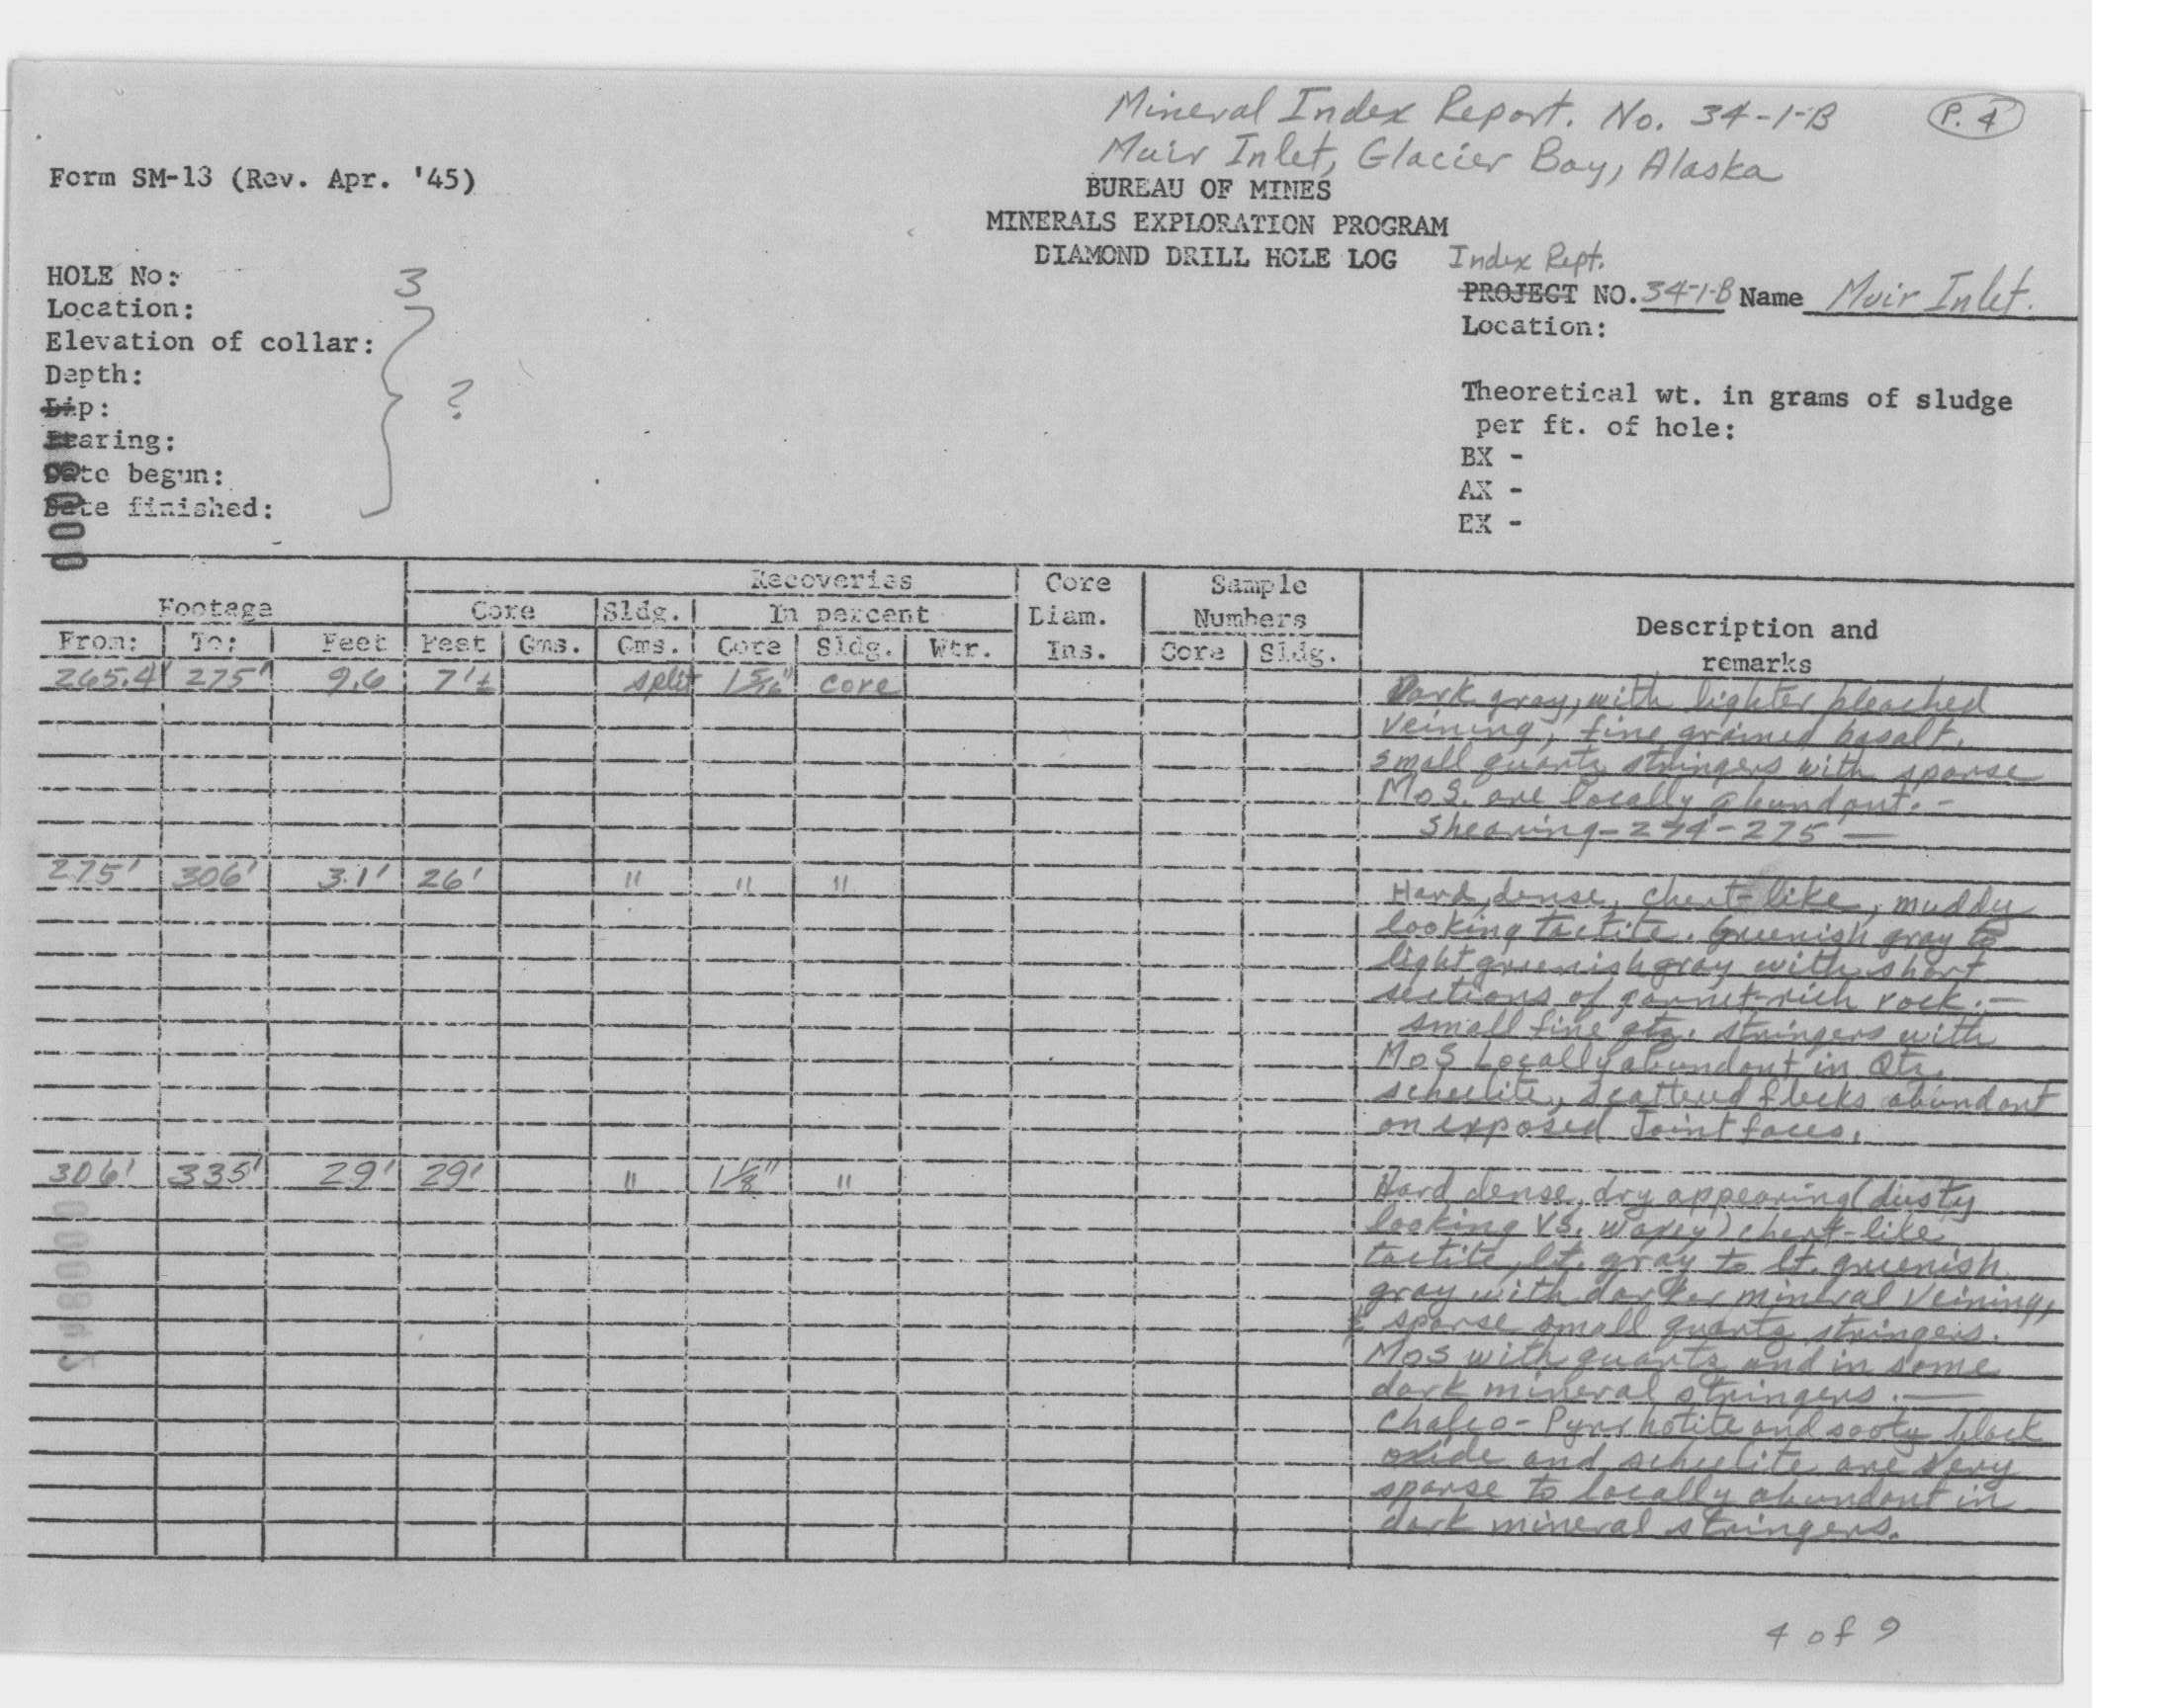 Mineral Index Report. No. 34-1-B P. 4
Muir Inlet, Glacier Bay, Alaska
Form SM-13 (Rev. Apr. '45)
BUREAU OF MINES
MINERALS EXPLORATION PROGRAM
DIAMOND DRILL HOLE LOG
Index Rept.
HOLE No: 3
PROJECT NO. 34-1-B Name Muir Inlet.
Location:
Location:
Elevation of collar:
Depth:
?
Dip:
Bearing:
Date begun:
Date finished:
Theoretical wt. in grams of sludge
per ft. of hole:
BX -
AX -
EX -
Footage Recoveries Core Sample
Core Sldg. In percent Diam. Numbers Description and
From: To: Feet Feet Gms. Gms. Core Sldg. Wtr. Ins. Core Sldg. remarks
265.4' 275' 9.6 7'± split 1 5/16" core Dark gray, with lighter bleached
veining, fine grained basalt.
Small quartz stringers with sparse
MoS. are locally abundant. -
Shearing - 274' - 275' —
275' 306' 31' 26' " " " Hard, dense, chert-like, muddy
looking tactite. Greenish gray to
light greenish gray with short
sections of garnet-rich rock. —
small fine qtz. stringers with
MoS Locally abundant in Qtz.
scheelite, scattered flecks abundant
on exposed Joint faces.
306' 335' 29' 29' " 1 1/8" " Hard, dense, dry appearing (dusty
looking vs. waxey) chert-like
tactite, lt. gray to lt. greenish
gray with darker mineral veining,
& sparse small quartz stringers.
MoS with quartz and in some
dark mineral stringers. —
Chalco-Pyrrhotite and sooty black
oxide and scheelite are very
sparse to locally abundant in
dark mineral stringers.
4 of 9